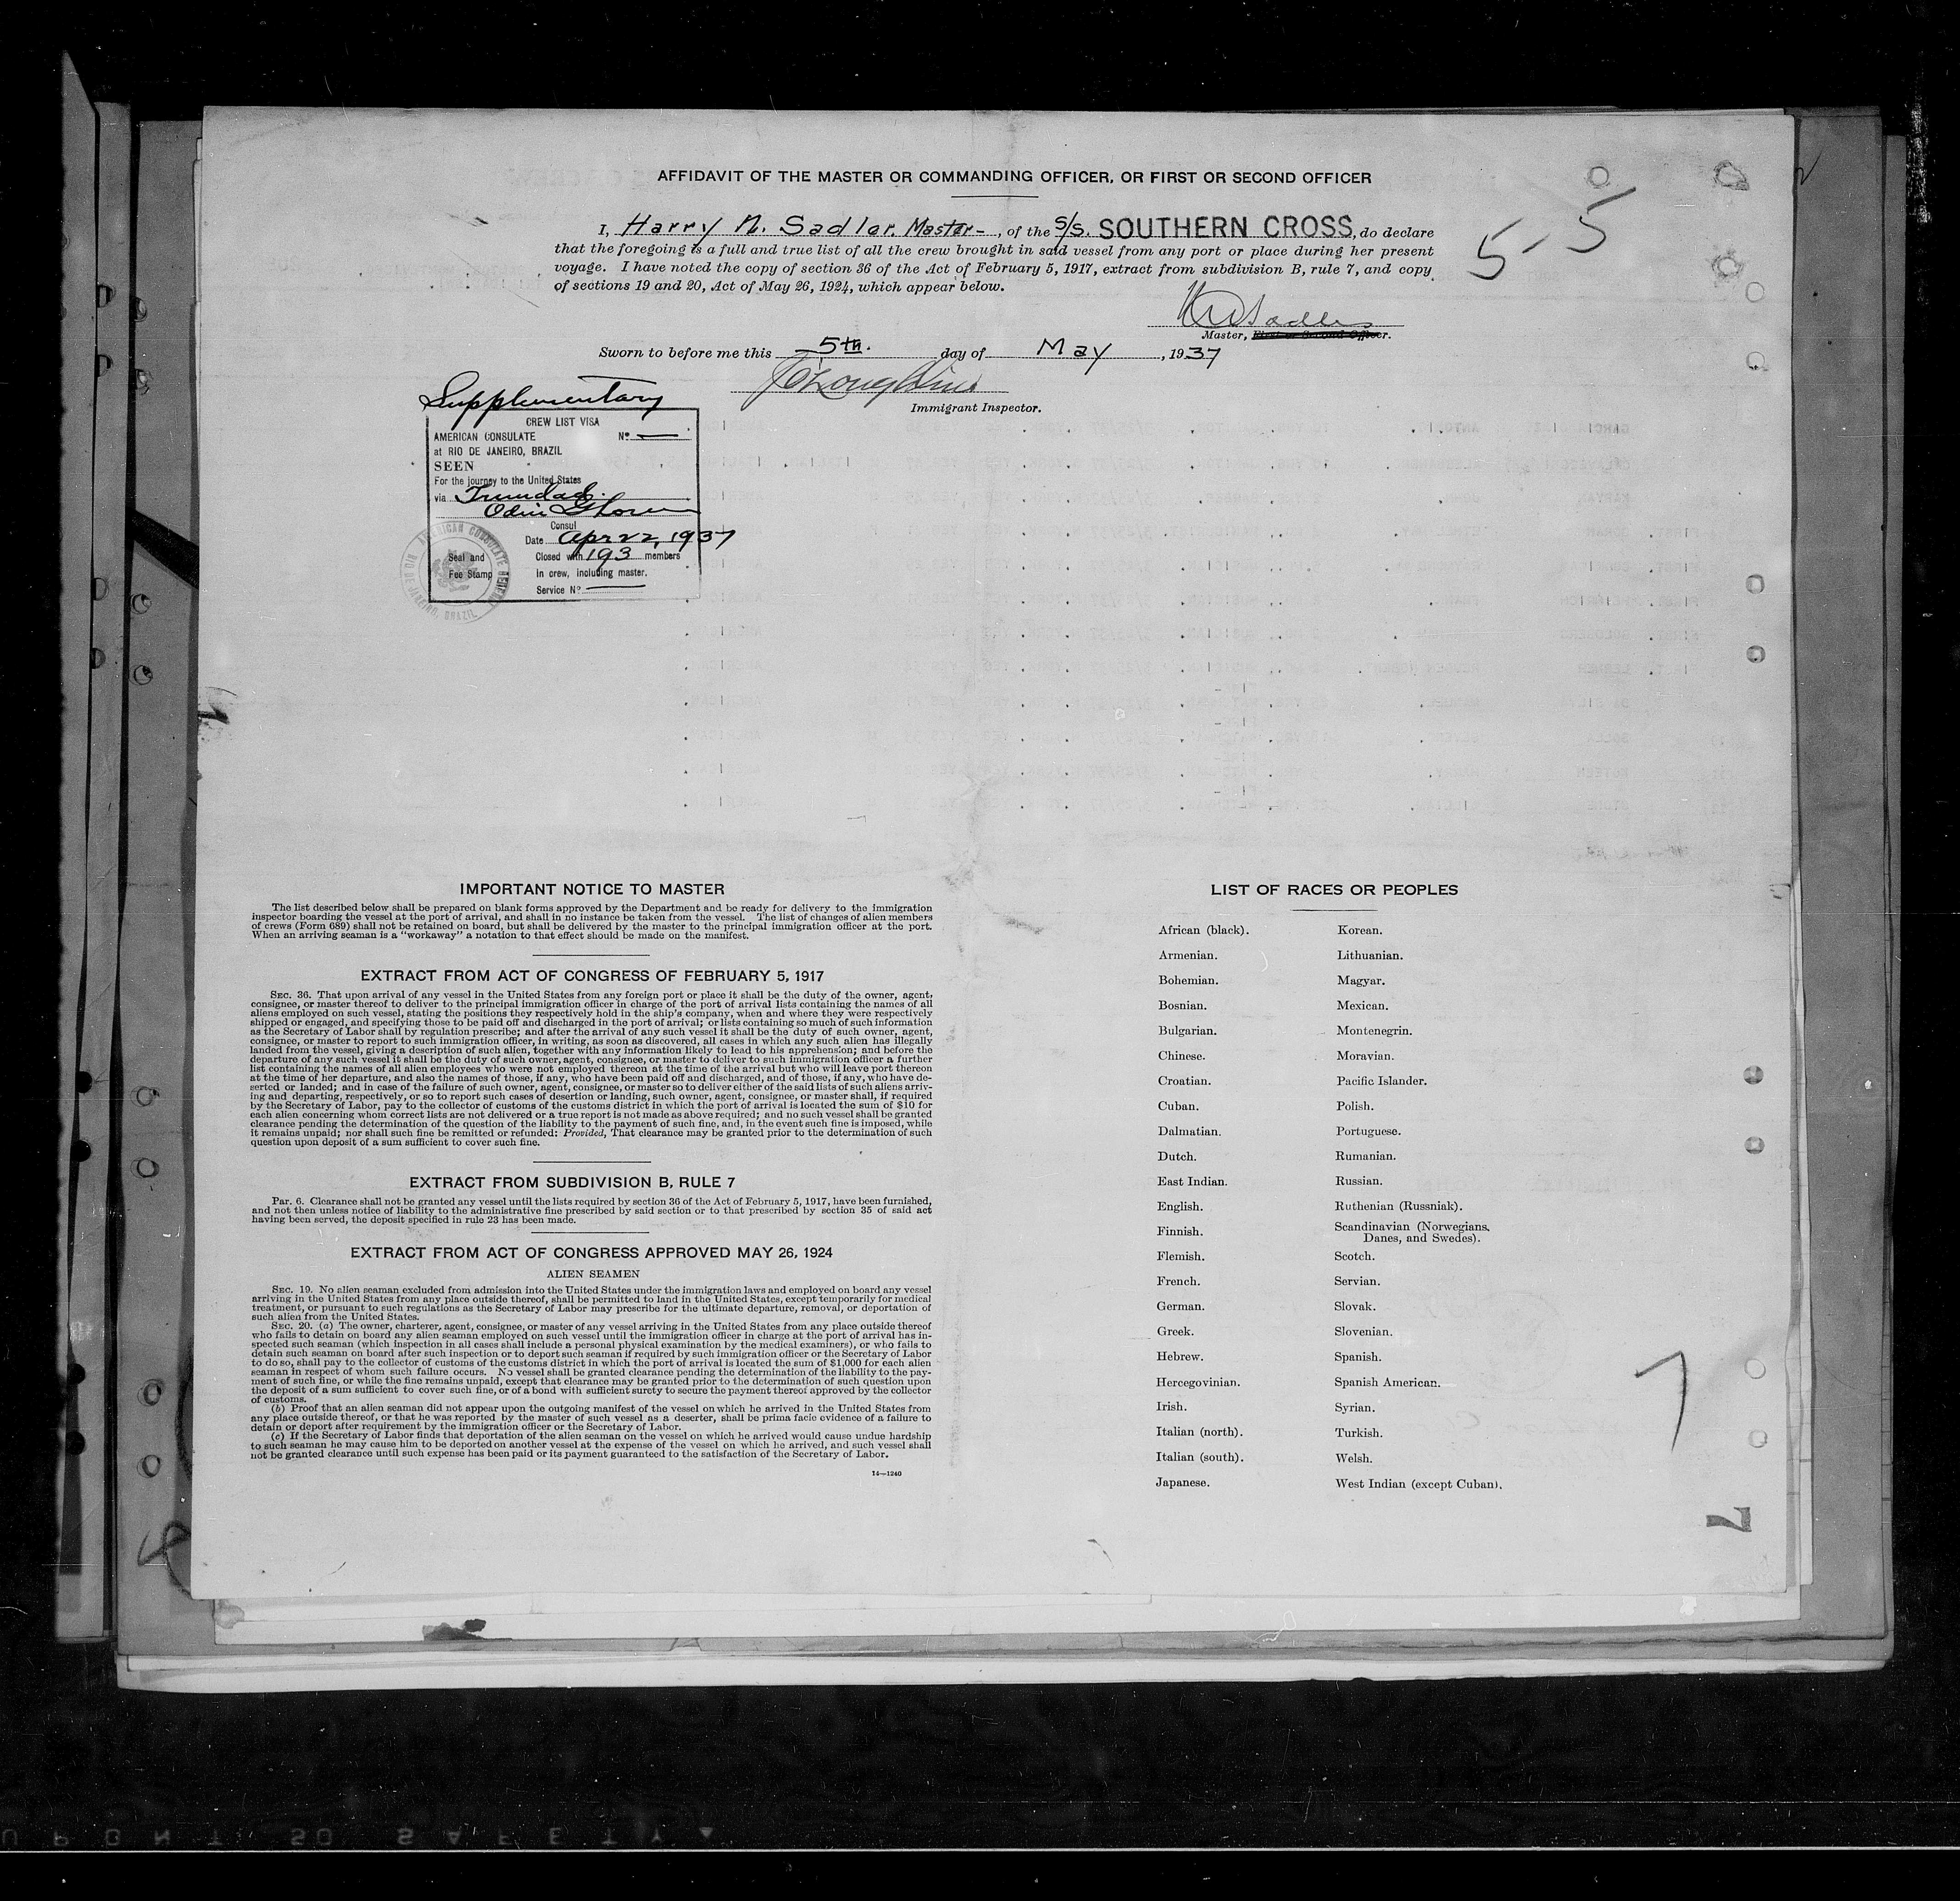 AFFIDAVIT OF THE MASTER OR COMMANDING OFFICER, OR FIRST OR SECOND OFFICER
I, Harry N. Sadler. Master-, of the S/S. SOUTHERN CROSS, do declare
that the foregoing is a full and true list of all the crew brought in said vessel from any port or place during her present
voyage. I have noted the copy of section 36 of the Act of February 5, 1917, extract from subdivision B, rule 7, and copy
of sections 19 and 20, Act of May 26, 1924, which appear below.
5-5
Master, First or Second Officer.
Sworn to before me this 5th. day of May, 1937
Immigrant Inspector.
Supplementary
CREW LIST VISA
AMERICAN CONSULATE No —
at RIO DE JANEIRO, BRAZIL
SEEN
For the journey to the United States
via Trinidad.
Consul
Date Apr 22, 1937
Seal and Closed with 193 members
Fee Stamp In crew, including master.
Service No —
IMPORTANT NOTICE TO MASTER
The list described below shall be prepared on blank forms approved by the Department and be ready for delivery to the immigration
inspector boarding the vessel at the port of arrival, and shall in no instance be taken from the vessel. The list of changes of alien members
of crews (Form 689) shall not be retained on board, but shall be delivered by the master to the principal immigration officer at the port.
When an arriving seaman is a "workaway" a notation to that effect should be made on the manifest.
EXTRACT FROM ACT OF CONGRESS OF FEBRUARY 5, 1917
SEC. 36. That upon arrival of any vessel in the United States from any foreign port or place it shall be the duty of the owner, agent,
consignee, or master thereof to deliver to the principal immigration officer in charge of the port of arrival lists containing the names of all
aliens employed on such vessel, stating the positions they respectively hold in the ship's company, when and where they were respectively
shipped or engaged, and specifying those to be paid off and discharged in the port of arrival; or lists containing so much of such information
as the Secretary of Labor shall by regulation prescribe; and after the arrival of any such vessel it shall be the duty of such owner, agent,
consignee, or master to report to such immigration officer, in writing, as soon as discovered, all cases in which any such alien has illegally
landed from the vessel, giving a description of such alien, together with any information likely to lead to his apprehension; and before the
departure of any such vessel it shall be the duty of such owner, agent, consignee, or master to deliver to such immigration officer a further
list containing the names of all alien employees who were not employed thereon at the time of the arrival but who will leave port thereon
at the time of her departure, and also the names of those, if any, who have been paid off and discharged, and of those, if any, who have de-
serted or landed; and in case of the failure of such owner, agent, consignee, or master so to deliver either of the said lists of such aliens arriv-
ing and departing, respectively, or so to report such cases of desertion or landing, such owner, agent, consignee, or master shall, if required
by the Secretary of Labor, pay to the collector of customs of the customs district in which the port of arrival is located the sum of $10 for
each alien concerning whom correct lists are not delivered or a true report is not made as above required; and no such vessel shall be granted
clearance pending the determination of the question of the liability to the payment of such fine, and, in the event such fine is imposed, while
it remains unpaid; nor shall such fine be remitted or refunded: Provided, That clearance may be granted prior to the determination of such
question upon deposit of a sum sufficient to cover such fine.
EXTRACT FROM SUBDIVISION B, RULE 7
Par. 6. Clearance shall not be granted any vessel until the lists required by section 36 of the Act of February 5, 1917, have been furnished,
and not then unless notice of liability to the administrative fine prescribed by said section or to that prescribed by section 35 of said act
having been served, the deposit specified in rule 23 has been made.
EXTRACT FROM ACT OF CONGRESS APPROVED MAY 26, 1924
ALIEN SEAMEN
SEC. 19. No alien seaman excluded from admission into the United States under the immigration laws and employed on board any vessel
arriving in the United States from any place outside thereof, shall be permitted to land in the United States, except temporarily for medical
treatment, or pursuant to such regulations as the Secretary of Labor may prescribe for the ultimate departure, removal, or deportation of
such alien from the United States.
SEC. 20. (a) The owner, charterer, agent, consignee, or master of any vessel arriving in the United States from any place outside thereof
who fails to detain on board any alien seaman employed on such vessel until the immigration officer in charge at the port of arrival has in-
spected such seaman (which inspection in all cases shall include a personal physical examination by the medical examiners), or who fails to
detain such seaman on board after such inspection or to deport such seaman if required by such immigration officer or the Secretary of Labor
to do so, shall pay to the collector of customs of the customs district in which the port of arrival is located the sum of $1,000 for each alien
seaman in respect of whom such failure occurs. No vessel shall be granted clearance pending the determination of the liability to the pay-
ment of such fine, or while the fine remains unpaid, except that clearance may be granted prior to the determination of such question upon
the deposit of a sum sufficient to cover such fine, or of a bond with sufficient surety to secure the payment thereof approved by the collector
of customs.
(b) Proof that an alien seaman did not appear upon the outgoing manifest of the vessel on which he arrived in the United States from
any place outside thereof, or that he was reported by the master of such vessel as a deserter, shall be prima facie evidence of a failure to
detain or deport after requirement by the immigration officer or the Secretary of Labor.
(c) If the Secretary of Labor finds that deportation of the alien seaman on the vessel on which he arrived would cause undue hardship
to such seaman he may cause him to be deported on another vessel at the expense of the vessel on which he arrived, and such vessel shall
not be granted clearance until such expense has been paid or its payment guaranteed to the satisfaction of the Secretary of Labor.
14—1240
LIST OF RACES OR PEOPLES
African (black).
Armenian.
Bohemian.
Bosnian.
Bulgarian.
Chinese.
Croatian.
Cuban.
Dalmatian.
Dutch.
East Indian.
English.
Finnish.
Flemish.
French.
German.
Greek.
Hebrew.
Hercegovinian.
Irish.
Italian (north).
Italian (south).
Japanese.
Korean.
Lithuanian.
Magyar.
Mexican.
Montenegrin.
Moravian.
Pacific Islander.
Polish.
Portuguese.
Rumanian.
Russian.
Ruthenian (Russniak).
Scandinavian (Norwegians,
Danes, and Swedes).
Scotch.
Servian.
Slovak.
Slovenian.
Spanish.
Spanish American.
Syrian.
Turkish.
Welsh.
West Indian (except Cuban).
7
7